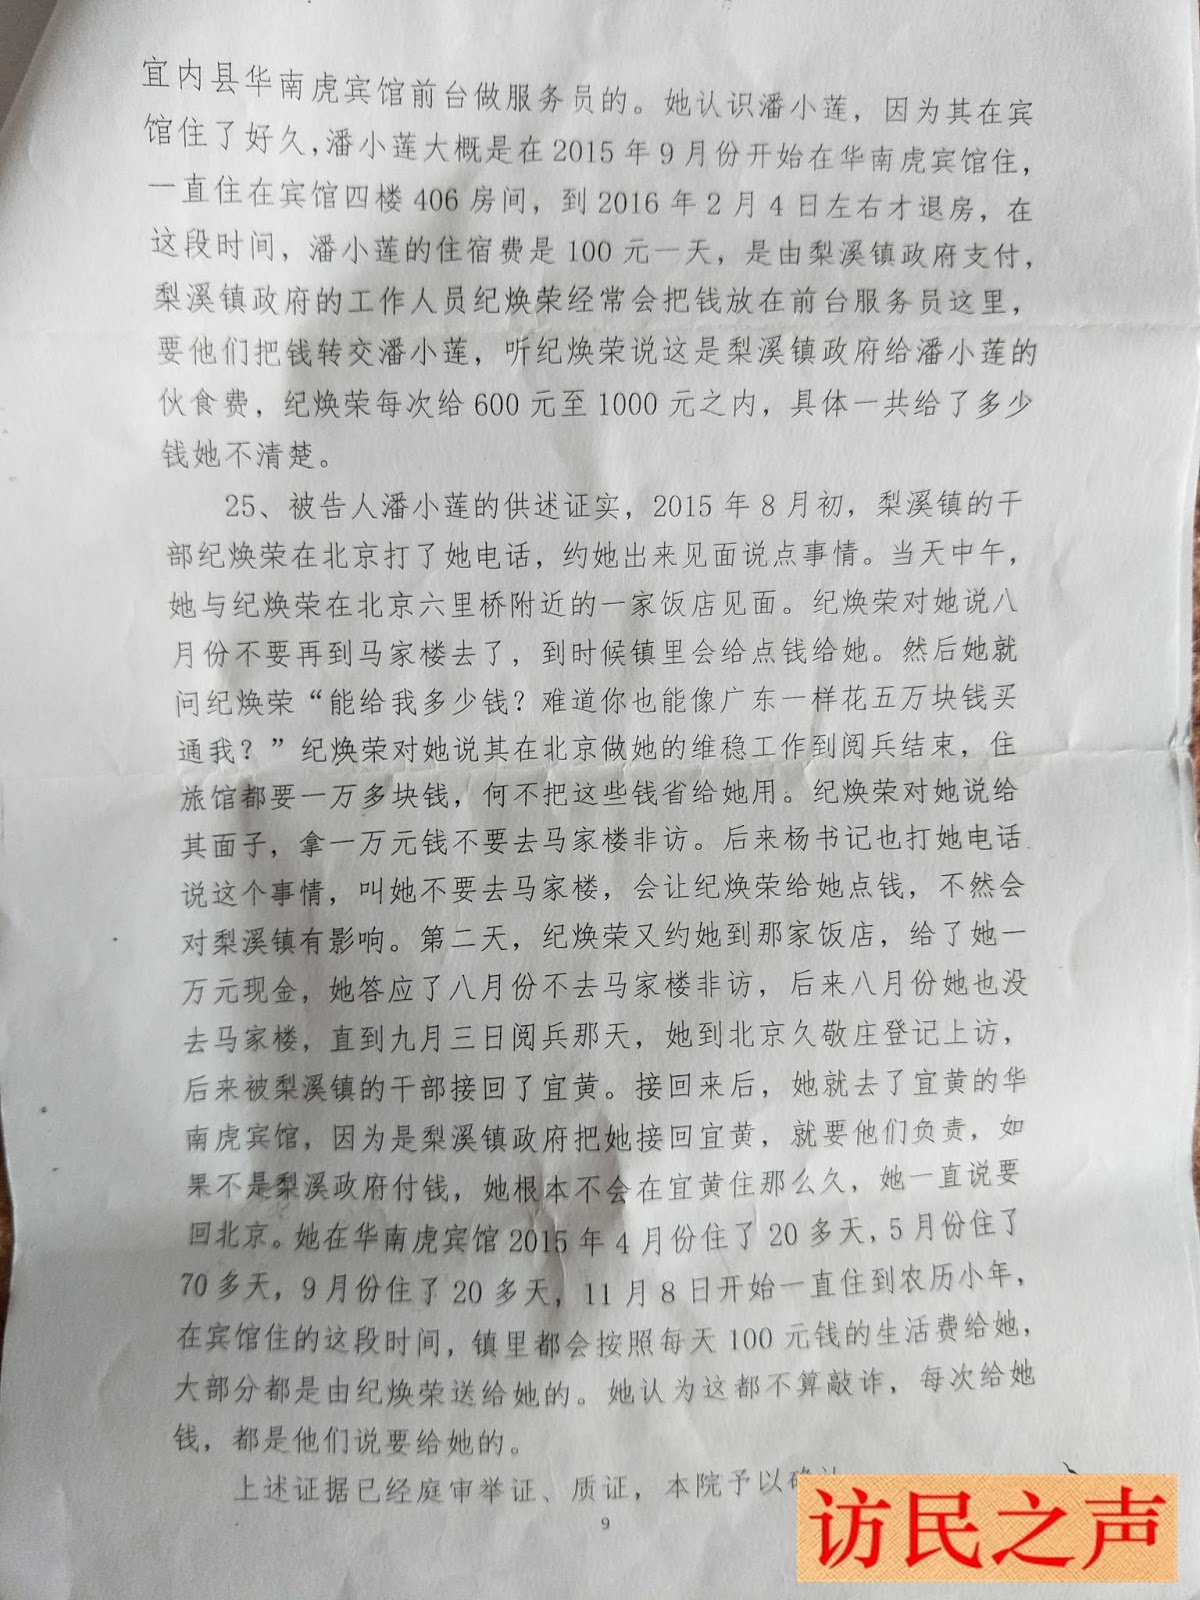 宜内县华南虎宾馆前台做服务员的。她认识潘小莲，因为其在宾
馆住了好久,潘小莲大概是在 2015 年 9 月份开始在华南虎宾馆住，
一直住在宾馆四楼 406 房间，到 2016 年 2 月 4 日左右才退房，在
这段时间，潘小莲的住宿费是 100 元一天，是由梨溪镇政府支付，
梨溪镇政府的工作人员纪焕荣经常会把钱放在前台服务员这里，
要他们把钱转交潘小莲，听纪焕荣说这是梨溪镇政府给潘小莲的
伙食费，纪焕荣每次给 600 元至 1000 元之内，具体一共给了多少
钱她不清楚。
25、被告人潘小莲的供述证实，2015 年 8 月初，梨溪镇的干
部纪焕荣在北京打了她电话，约她出来见面说点事情。当天中午，
她与纪焕荣在北京六里桥附近的一家饭店见面。纪焕荣对她说八
月份不要再到马家楼去了，到时候镇里会给点钱给她。然后她就
问纪焕荣“能给我多少钱？难道你也能像广东一样花五万块钱买
通我？”纪焕荣对她说其在北京做她的维稳工作到阅兵结束，住
旅馆都要一万多块钱，何不把这些钱省给她用。纪焕荣对她说给
其面子，拿一万元钱不要去马家楼非访。后来杨书记也打她电话
说这个事情，叫她不要去马家楼，会让纪焕荣给她点钱，不然会
对梨溪镇有影响。第二天，纪焕荣又约她到那家饭店，给了她一
万元现金，她答应了八月份不去马家楼非访，后来八月份她也没
去马家楼，直到九月三日阅兵那天，她到北京久敬庄登记上访，
后来被梨溪镇的干部接回了宜黄。接回来后，她就去了宜黄的华
南虎宾馆，因为是梨溪镇政府把她接回宜黄，就要他们负责，如
果不是梨溪政府付钱，她根本不会在宜黄住那么久，她一直说要
回北京。她在华南虎宾馆 2015 年 4 月份住了 20 多天,5 月份住了
70 多天，9 月份住了 20 多天，11 月 8 日开始一直住到农历小年，
在宾馆住的这段时间，镇里都会按照每天 100 元钱的生活费给她，
大部分都是由纪焕荣送给她的。她认为这都不算敲诈，每次给她
钱，都是他们说要给她的。
上述证据已经庭审举证、质证，本院予以确认
9
访民之声